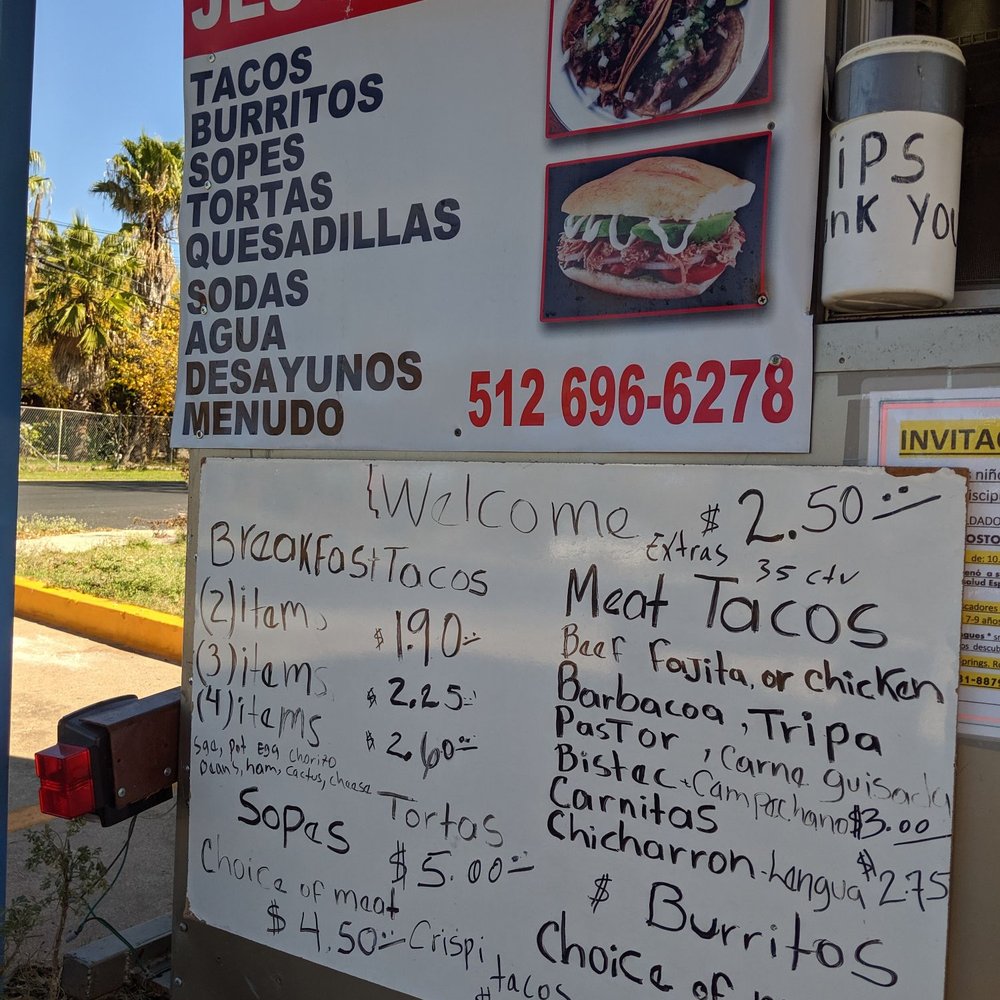 TACOS
BURRITOS
SOPES
TORTAS
QUESADILLAS
SODAS
AGUA
DESAYUNOS
MENUDO
512 696-6278
iPS
nk You
INVITA
Welcome
$ 2.50
Extras 35 ctv
BreakFast Tacos
(2) items $1.90
(3) items $2.25
(4) items $2.60
Sge, pot Egg chorizo
beans, ham, cactus, cheese
Sopes
Choice of meat
$4.50
Tortas
$5.00
Crispi
tacos
Meat Tacos
Beef Fajita, or chicken
Barbacoa, Tripa
PasTor, Carne guisada
Bistec - Campechano $3.00
Carnitas
Chicharron - Lengua $2.75
$ Burritos
Choice of